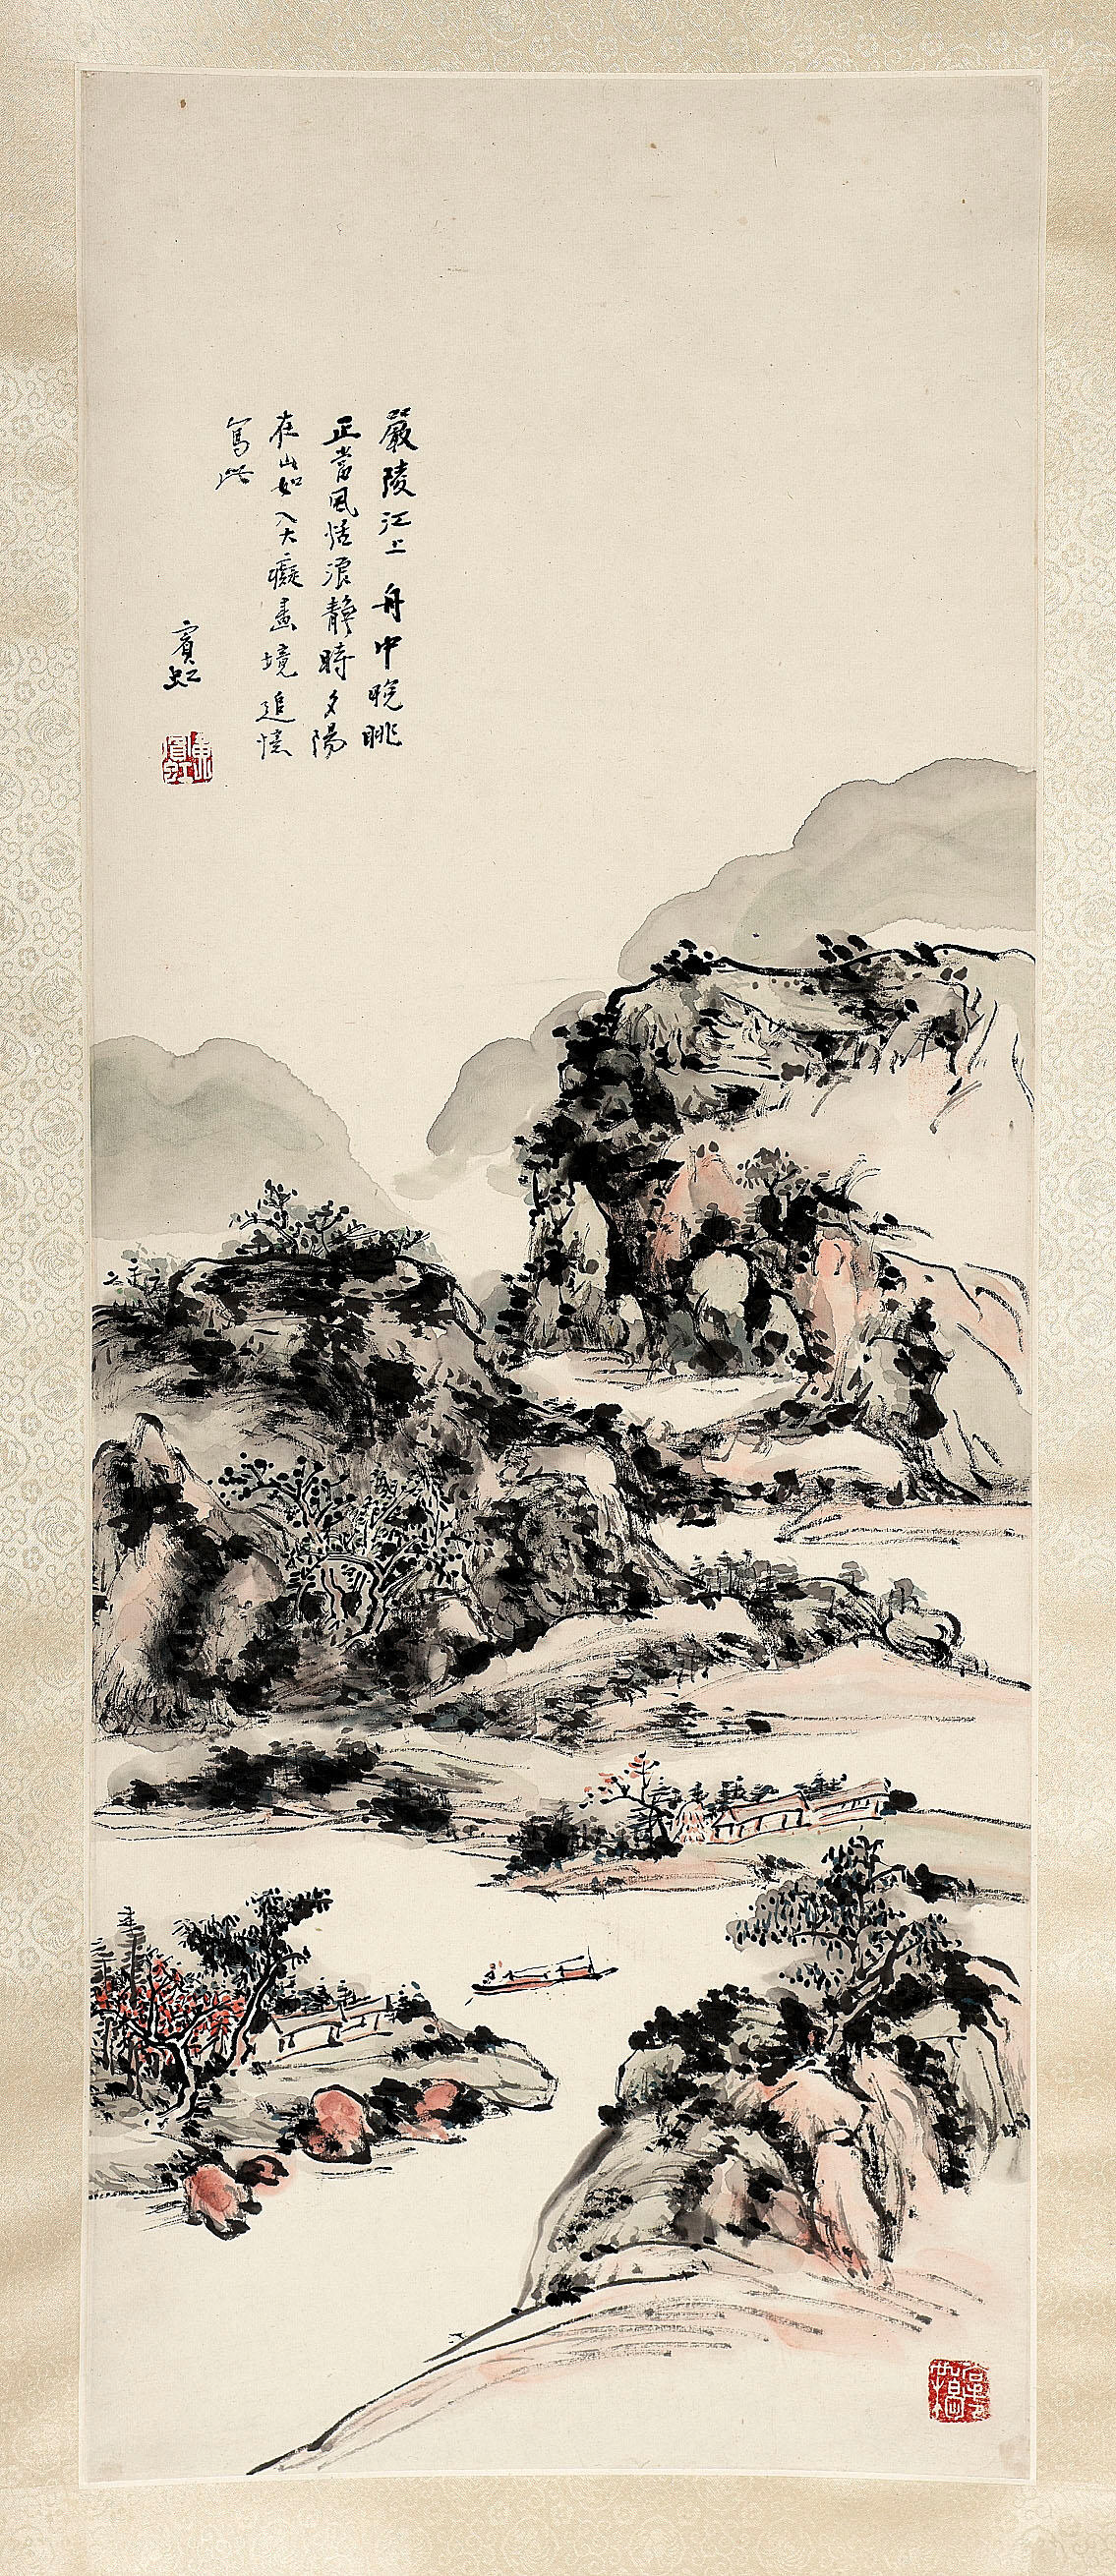 嚴陵江上舟中晚眺
正當風恬浪靜時夕陽
在山如入大癡畫境追憶
寫此
賓虹
黃賓虹